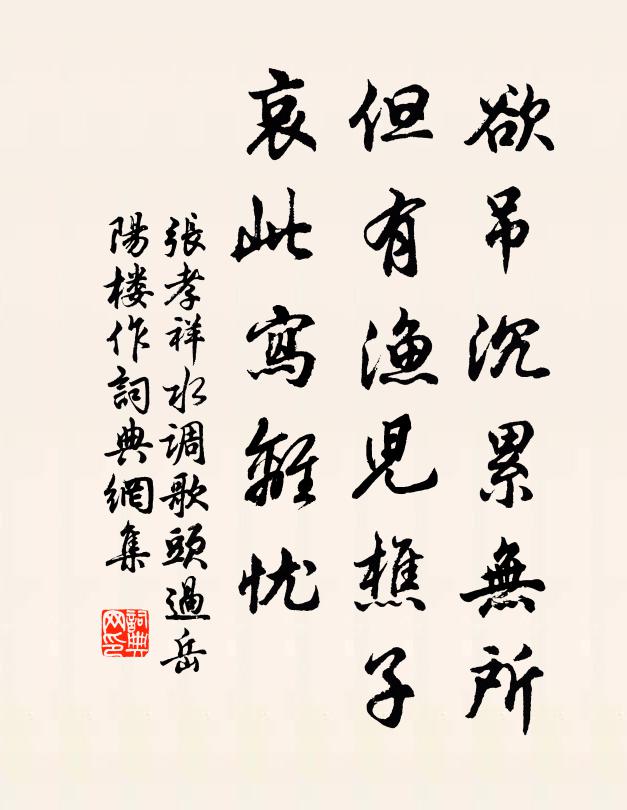 欲吊沉累無所
但有渔児樵子
哀此寫離忧
張孝祥水调歌頭過岳
陽楼作詞典網集
詞典
网印